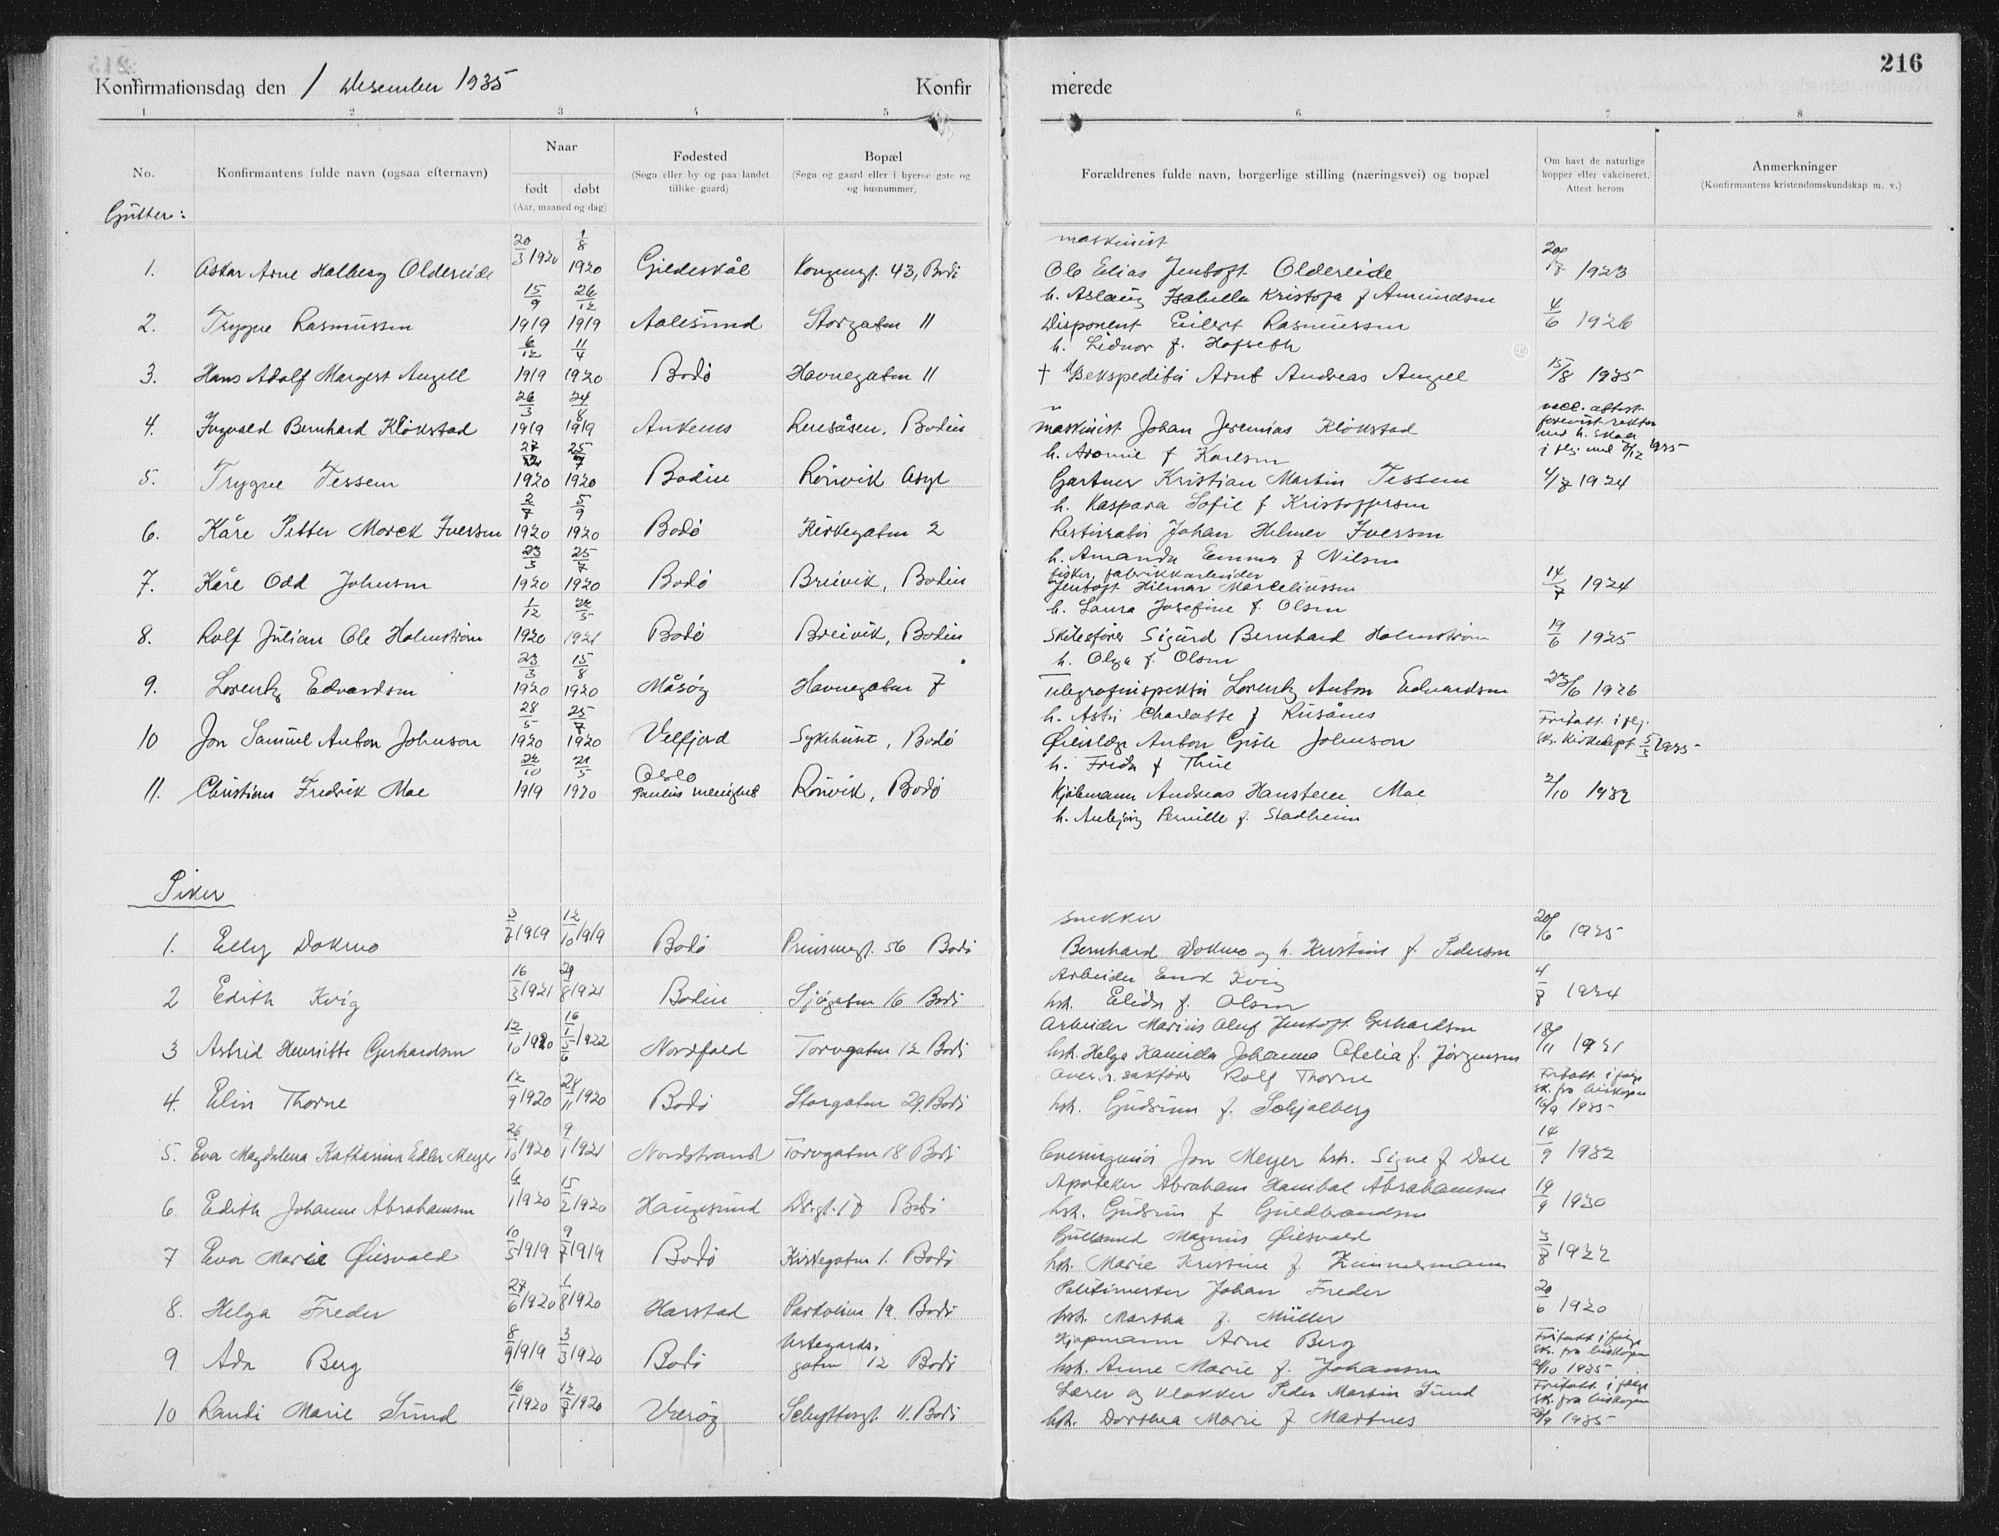 216
Konfirmationsdag den 1 Desember 1935 Konfirmerede
1 2 3 4 5 6 7 8
No. Konfirmantens fulde navn (ogsaa efternavn) Naar født døbt (Aar, maaned og dag) Fødested (Sogn eller by og paa landet tillike gaard) Bopæl (Sogn og gaard eller i byerne gate og og husnummer) Forældrenes fulde navn, borgerlige stilling (næringsvei) og bopæl Om havt de naturlige kopper eller vakcineret. Attest herom Anmerkninger (Konfirmantens kristendomskundskap m. v.)
Gutter:
maskinist
1. Oskar Arne Halberg Oldereide 20/3 1920 1/8 1920 Gjildeskål Kongensgt. 43, Bodø Ole Elias Jentoft Oldereide 1923
h. Aslaug Isabella Kristofa f Amundsen
2. Trygve Rasmussen 15/9 1919 26/12 1919 Aalesund Storgaten 11 Disponent Eilert Rasmussen 4/6 1926
h. Lidvor f. Hofseth
3. Hans Adolf Margert Angell 6/12 1919 11/4 1920 Bodø Havnegaten 11 † Arnt Andreas Angell 15/8 1935
4. Ingvald Bernhard Klokstad 26/3 1919 24/8 1919 Ankenes Bodin maskinist Johan Jeremias Klokstad
h. f Karlsen
5. Trygve Tessem 1920 25/7 1920 Bodin Rønvik Asyl Gartner Kristian Martin Tessem 1924
h. Kaspara Sofie f Kristoffersen
6. Kåre Petter Morck Iversen 2/7 1920 5/9 1920 Bodø Kirkegaten 2 Restauratør Johan Helmer Iversen
h. Amanda Emma f Nilsen
fisker, fabrikkarbeider
7. Kåre Odd Johnsen 23/3 1920 25/7 1920 Bodø Breivik, Bodin Jentoft Hilmar Marceliussen 14/7 1924
h. Laura Josefine f. Olsen
8. Rolf Julian Ole Holmstrøm 1/12 1920 22/5 1921 Bodø Breivik, Bodin Skibsfører Sigurd Bernhard Holmstrøm 19/6 1925
h. Olga f. Olsen
9. Lorentz Edvardsen 23/3 1920 15/8 1920 Måsøy Havnegaten 7 Telegrafinspektør Lorentz Anton Edvardsen 23/6 1926
h. Astri Charlotte f Rusånes
10 Jon Samuel Anton Johnson 28/5 1920 25/7 1920 Velfjord Sykehuset, Bodø Øienlæge Anton Giste Johnson Fritatt i flg. skr. Kirkedept 5/3 1935
h. Frida f Thue
11. Christian Fredrik Moe 22/10 1919 21/5 1920 Oslo Paulus menighed Rønvik, Bodø Kjøbmann Andreas Hansteen Moe 2/10 1932
h. Pernille f. Stadheim
Piker
snekker
1. Elly Dokmo 1919 12/10 1919 Bodø Prinsensgt. 56 Bodø Bernhard Dokmo og h. Kirstine f. Pedersen 20/6 1925
2 Edith Kvig 16/3 1921 29/8 1921 Bodin Sjøgaten 16 Bodø Arbeider Kvig
hst. Elida f. Olsen 1924
3 Astrid Henriette Gerhardsen 12/10 1920 1922 Nordfold Torvgaten 12 Bodø Arbeider Marius Oluf Jentoft Gerhardsen 18/11 1921
hst. Helga Kamilda Johanna Otelia f. Jørgensen
4. Elin Thorne 12/9 1920 28/11 1920 Bodø Storgaten 29. Bodø Over.r. sakfører Rolf Thorne
hst. Gudrun f. Schjølberg Fritatt i følge sk. fra biskopen 16/9 1935
5. Eva Magdalena Katharina Edler Meyer 26/10 1920 9/1 1921 Nordstrand Torvgaten 18 Bodø Jon Meyer hst. Signe f Dahl 14/9 1932
6. Edith Johanne Abrahamsen 6/1 1920 15/2 1920 Haugesund Bodø Apoteker Abraham Hanibal Abrahamsen 19/9 1930
hst. Gudrun f Guldbrandsen
7 Eva Marie Øiesvold 10/5 1919 9/7 1919 Bodø Kirkegaten 1. Bodø Gullsmed Magnus Øiesvold
hst. Marie Kristine f Zimmermann 3/8 1922
8. Helga Freder 27/6 1920 1/8 1920 Harstad Parkveien 19. Bodø Politimester Johan Freder
hst. Martha f. Müller 20/6 1920
9 Ada Berg 8/9 1919 3/3 1920 Bodø gaten 12 Bodø Kjøpmann Arne Berg
hst. Anne Marie f. Johansen Fritatt i følge sk. fra biskopen 1935
10 Randi Marie Sund 16/1 1920 12/8 1920 Værøy Schyttesgt. 11. Bodø Lærer og klokker Peder Martin Sund
hst. Dorthea Marie f Martnes Fritatt i følge sk. fra biskopen 1935